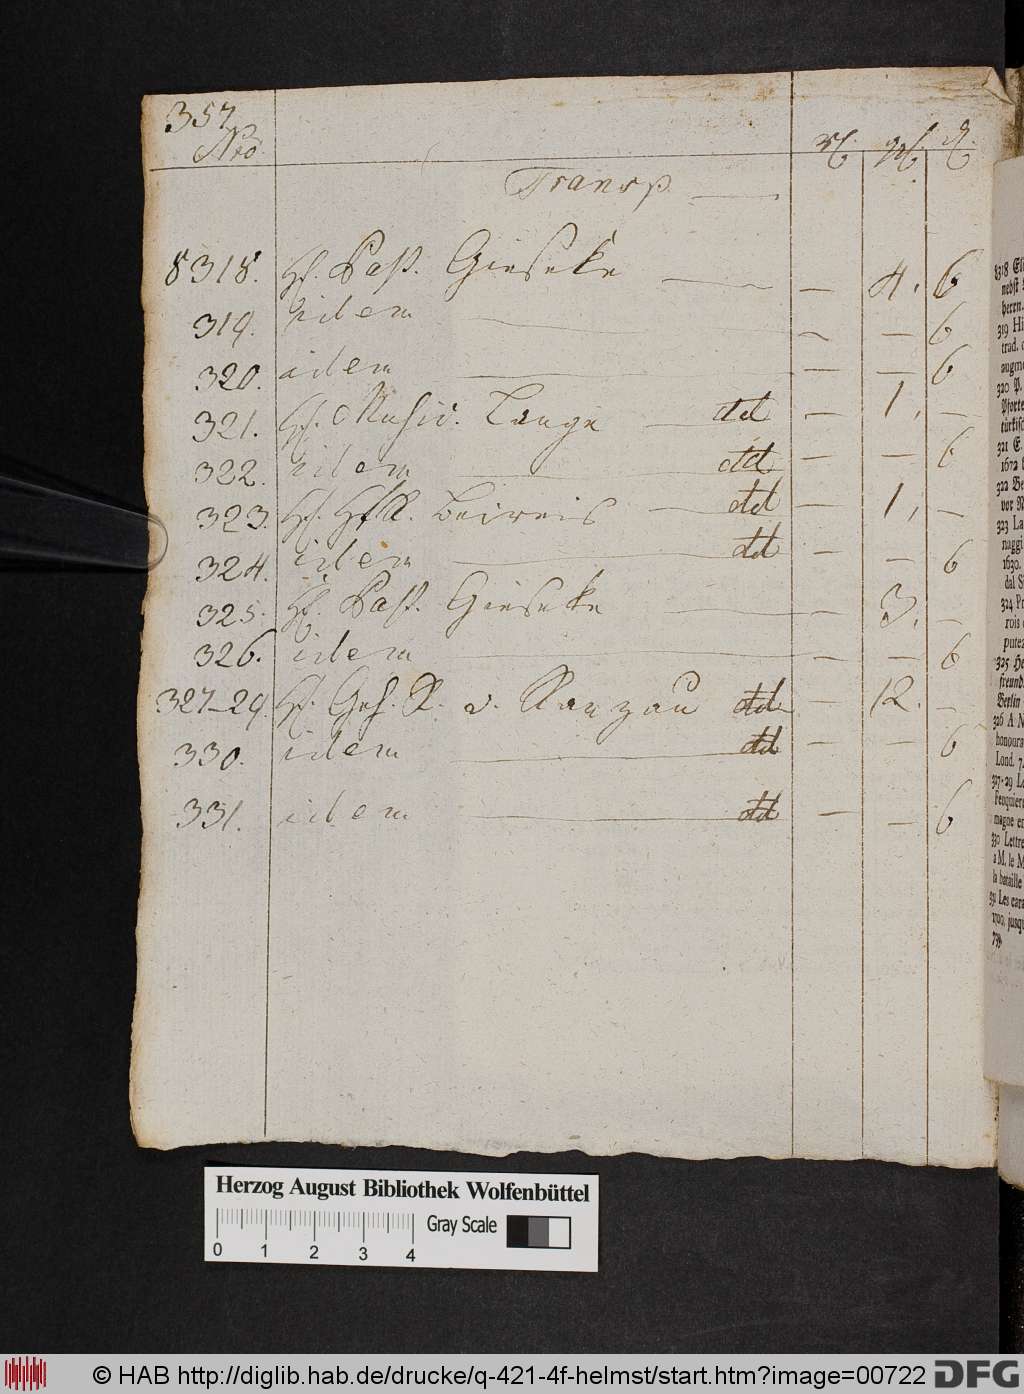 357
Nro.
Transp.
8318. H. Past. Gieseke — 4. 6
319. idem — — 6
320. idem — — 6
321. H. Music. Lange dd — 1, —
322. idem dd — — 6
323. H. Hfr. Beireis dd — 1, —
324. idem dd — — 6
325. H. Past. Gieseke — 3. —
326. idem — — 6
327-29. H. Geh. R. v. Ranzau dd — 12. —
330. idem dd — — 6
331. idem dd — — 6
8318
nebst
herrn.
319 Hi
trud.
augme
320 P.
Pforte
türkisc
321 E.
1672
322 Be
vor
323 La
naggi
1630.
dal S
324 Pr
rois
putez
325 He
freund.
Berlin
326 A
honoura
Lond. 7
327-29 Le
Feuquiere
magne en
330 Lettre
a M. le M
la bataille
331 Les cara
1700, jusqu
739
Herzog August Bibliothek Wolfenbüttel
Gray Scale
0 1 2 3 4
© HAB http://diglib.hab.de/drucke/q-421-4f-helmst/start.htm?image=00722 DFG